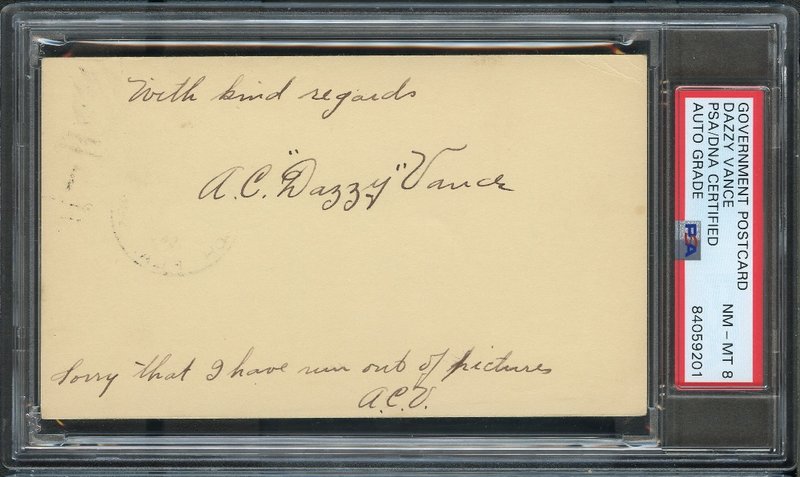 With kind regards
A.C. "Dazzy" Vance
Sorry that I have run out of pictures
A.C.V.
GOVERNMENT POSTCARD
DAZZY VANCE
PSA/DNA CERTIFIED
AUTO GRADE NM - MT 8
PSA 84059201